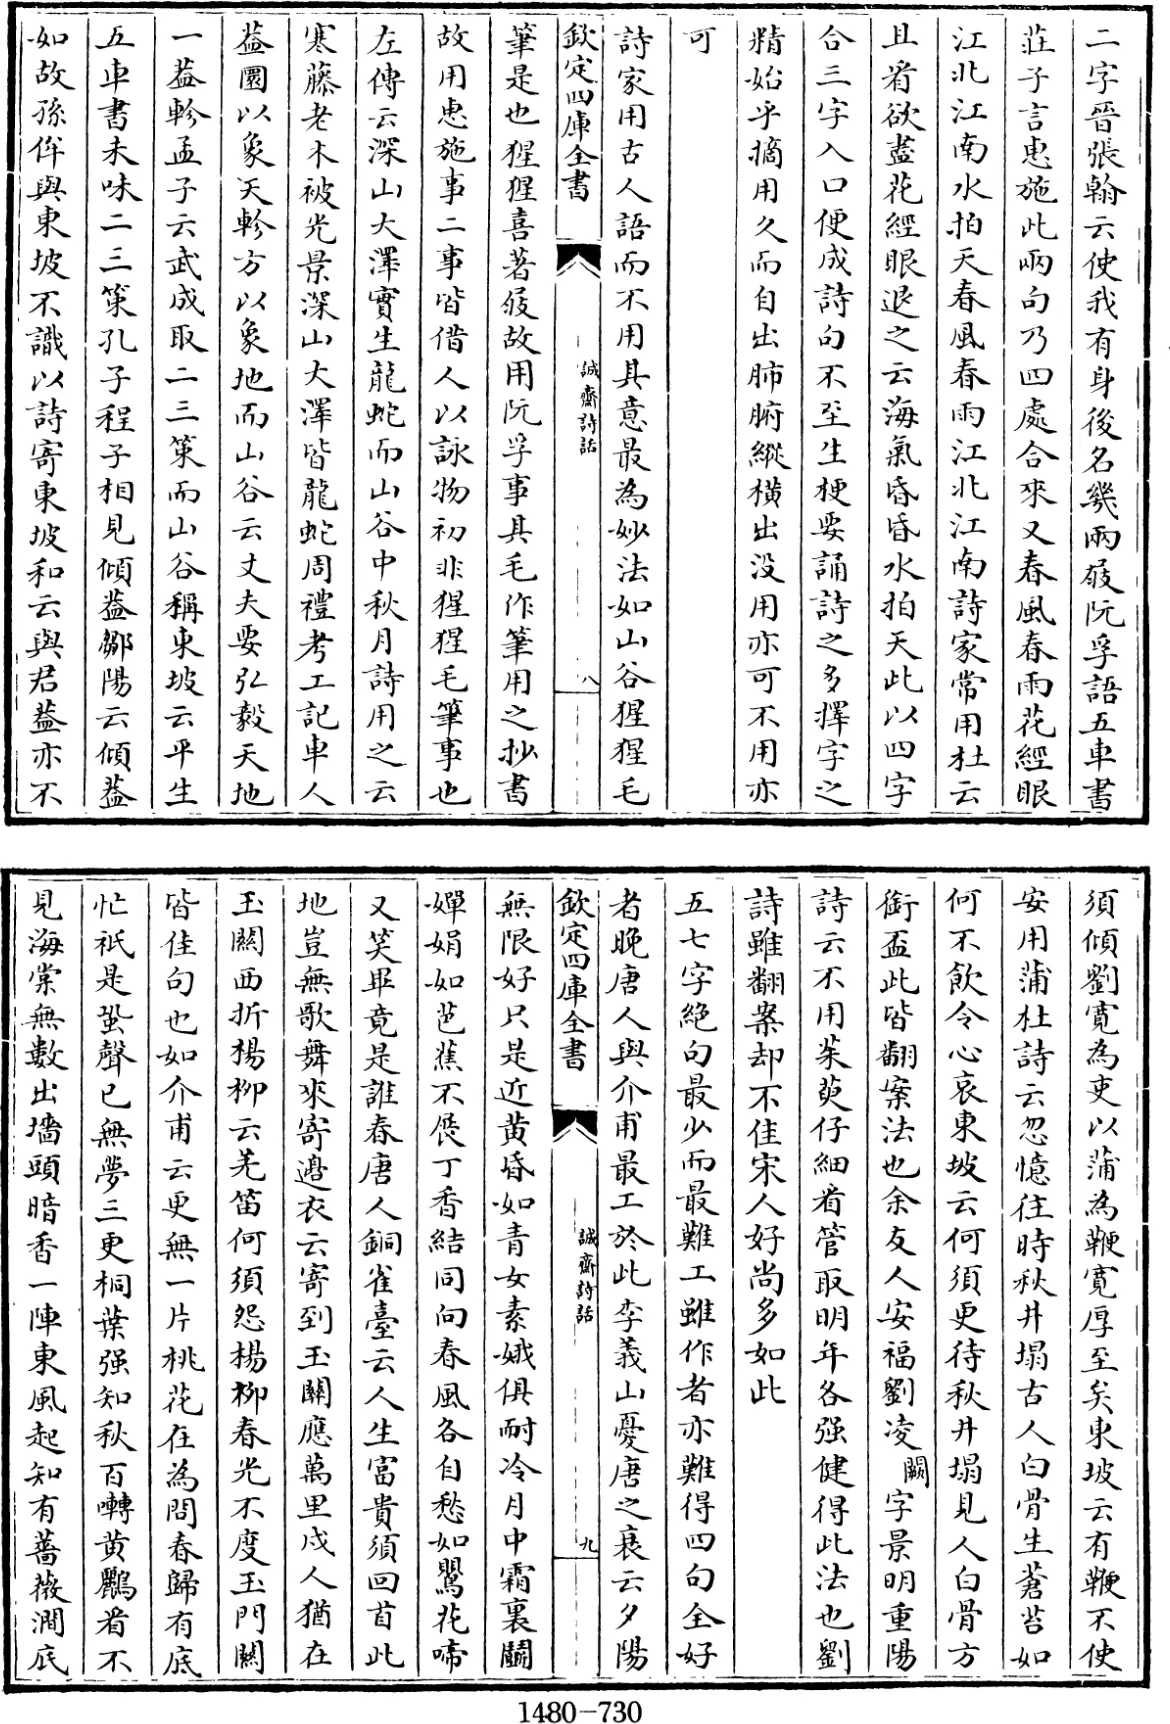 二字晉張翰云使我有身後名幾兩屐阮孚語五車書
莊子言惠施此兩句乃四處合來又春風春雨花經眼
江北江南水拍天春風春雨江北江南詩家常用杜云
且看欲盡花經眼退之云海氣昏昏水拍天此以四字
合三字入口便成詩句不至生梗要誦詩之多擇字之
精始乎摘用久而自出肺腑縱橫出沒用亦可不用亦
可
詩家用古人語而不用其意最為妙法如山谷猩猩毛
欽定四庫全書
誠齋詩話
八
筆是也猩猩喜著屐故用阮孚事其毛作筆用之抄書
故用惠施事二事皆借人以詠物初非猩猩毛筆事也
左傳云深山大澤實生龍蛇而山谷中秋月詩用之云
寒藤老木被光景深山大澤皆龍蛇周禮考工記車人
蓋圜以象天軫方以象地而山谷云丈夫要弘毅天地
一蓋軫孟子云武成取二三策而山谷稱東坡云平生
五車書未味二三策孔子程子相見傾蓋鄒陽云傾蓋
如故孫侔與東坡不識以詩寄東坡和云與君蓋亦不
須傾劉寬為吏以蒲為鞭寬厚至矣東坡云有鞭不使
安用蒲杜詩云忽憶往時秋井塌古人白骨生蒼苔如
何不飲令心哀東坡云何須更待秋井塌見人白骨方
銜盃此皆翻案法也余友人安福劉浚闕字景明重陽
詩云不用茱萸仔細看管取明年各强健得此法也劉
詩雖翻案却不佳宋人好尚多如此
五七字絶句最少而最難工雖作者亦難得四句全好
者晚唐人與介甫最工於此李義山憂唐之衰云夕陽
欽定四庫全書
誠齋詩話
九
無限好只是近黄昏如青女素娥俱耐冷月中霜裏鬭
嬋娟如芭蕉不展丁香結同向春風各自愁如鶯花啼
又笑畢竟是誰春唐人銅雀臺云人生富貴須回首此
地豈無歌舞來寄邊衣云寄到玉關應萬里戍人猶在
玉關西折楊柳云羌笛何須怨楊柳春光不度玉門關
皆佳句也如介甫云更無一片桃花在為問春歸有底
忙祇是蛩聲已無夢三更桐葉强知秋百囀黄鸝看不
見海棠無數出墻頭暗香一陣東風起知有薔薇澗底
1480-730